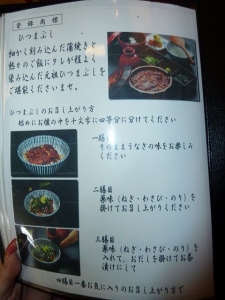 登録商標
ひつまぶし
細かく刻み込んだ蒲焼きと
熱々のご飯にタレが程よく
染み込んだ元祖ひつまぶしを
ご堪能くださいませ。
ひつまぶしのお召し上がり方
始めにお櫃の中を十文字に四等分に分けてください
一膳目
そのままうなぎの味をお楽しみ
ください
二膳目
薬味(ねぎ・わさび・のり)を
掛けてお召し上がりください
三膳目
薬味(ねぎ・わさび・のり)
を入れて、おだしを掛けてお茶
漬けにして
四膳目一番お気に入りのお召し上がり方で